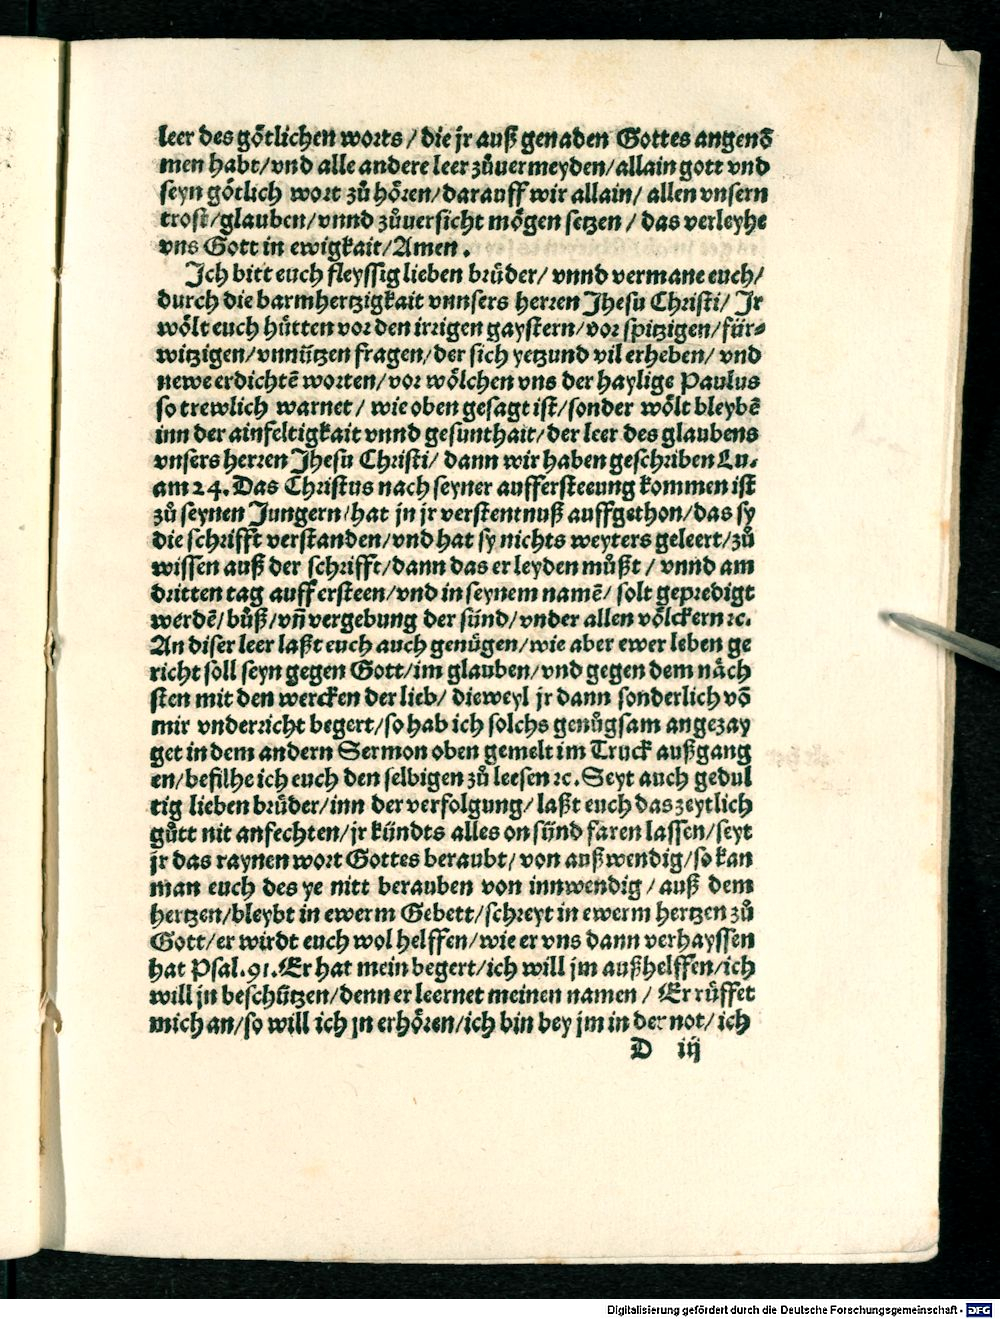 leer des götlichen worts / die jr auß genaden Gottes angenõ
men habt/vnd alle andere leer zůuermeyden/allain gott vnd
seyn götlich wort zů hören/darauff wir allain/ allen vnsern
trost/glauben/vnnd zůuersicht mögen setzen / das verleyhe
vns Gott in ewigkait/Amen.
Ich bitt euch fleyssig lieben brüder/ vnnd vermane euch/
durch die barmhertzigkait vnnsers herren Jhesu Christi/ Ir
wölt euch hütten vor den irrigen gaystern/vor spitzigen/für⸗
witzigen/vnnützen fragen/der sich yetzund vil erheben/ vnd
newe erdichtẽ worten/vor wölchen vns der haylige Paulus
so trewlich warnet / wie oben gesagt ist/sonder wölt bleybẽ
inn der ainfeltigkait vnnd gesunthait/der leer des glaubens
vnsers herren Jhesu Christi/ dann wir haben geschriben Lu.
am 24. Das Christus nach seyner auffersteeung kommen ist
zů seynen Jungern/hat jn jr verstentnuß auffgethon/das sy
die schrifft verstanden/vnd hat sy nichts weyters geleert/zů
wissen auß der schrifft/dann das er leyden můßt / vnnd am
dritten tag auff ersteen/vnd in seynem namẽ/ solt gepredigt
werdẽ/bůß/vñ vergebung der sünd/vnder allen völckern ⁊c.
An diser leer laßt euch auch genügen/wie aber ewer leben ge
richt soll seyn gegen Gott/im glauben/vnd gegen dem näch
sten mit den wercken der lieb/ dieweyl jr dann sonderlich võ
mir vnderricht begert/so hab ich solchs genůgsam angezay
get in dem andern Sermon oben gemelt im Truck außgang
en/befilhe ich euch den selbigen zů leesen ⁊c. Seyt auch gedul
tig lieben brüder/inn der verfolgung/laßt euch das zeytlich
gůtt nit anfechten/jr kündts alles on sünd faren lassen/seyt
jr das raynen wort Gottes beraubt/ von außwendig/so kan
man euch des ye nitt berauben von innwendig / auß dem
hertzen/bleybt in ewerm Gebett/schreyt in ewerm hertzen zů
Gott/er wirdt euch wol helffen/wie er vns dann verhayssen
hat Psal.91. Er hat mein begert/ich will jm außhelffen/ich
will jn beschützen/denn er leernet meinen namen / Er rüffet
mich an/so will ich jn erhören/ich bin bey jm in der not/ ich
D iij
Digitalisierung gefördert durch die Deutsche Forschungsgemeinschaft - DFG